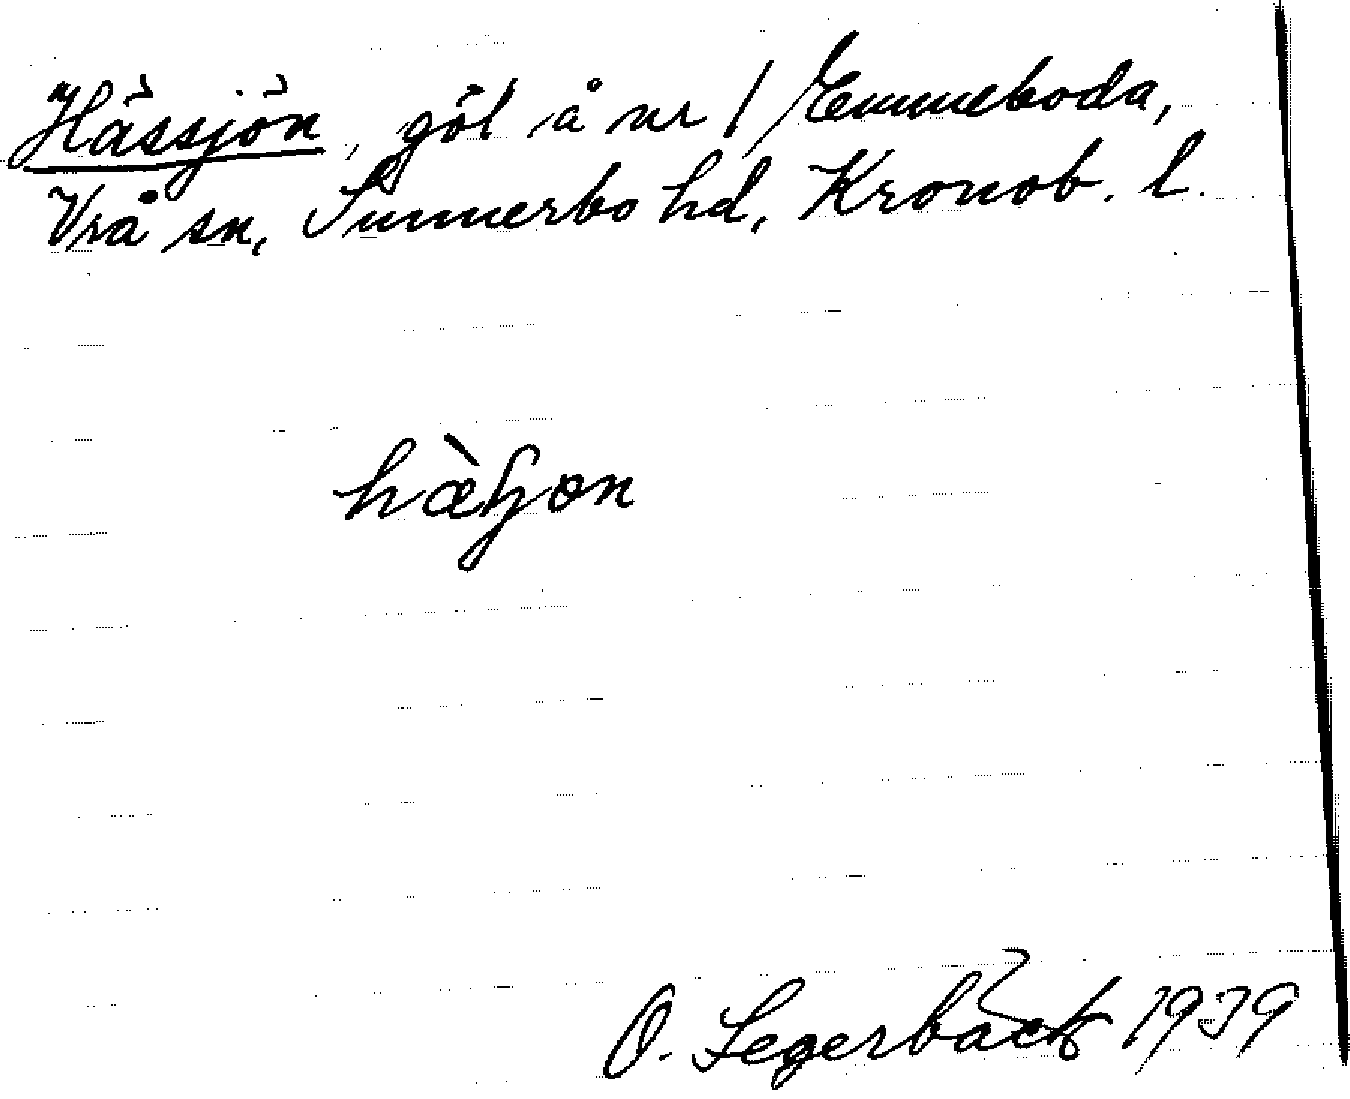 Hässjön, göl å nr 1 Emmeboda,
Vrå sn, Sunnerbo hd, Kronob. l.
O. Segerbäck 1939